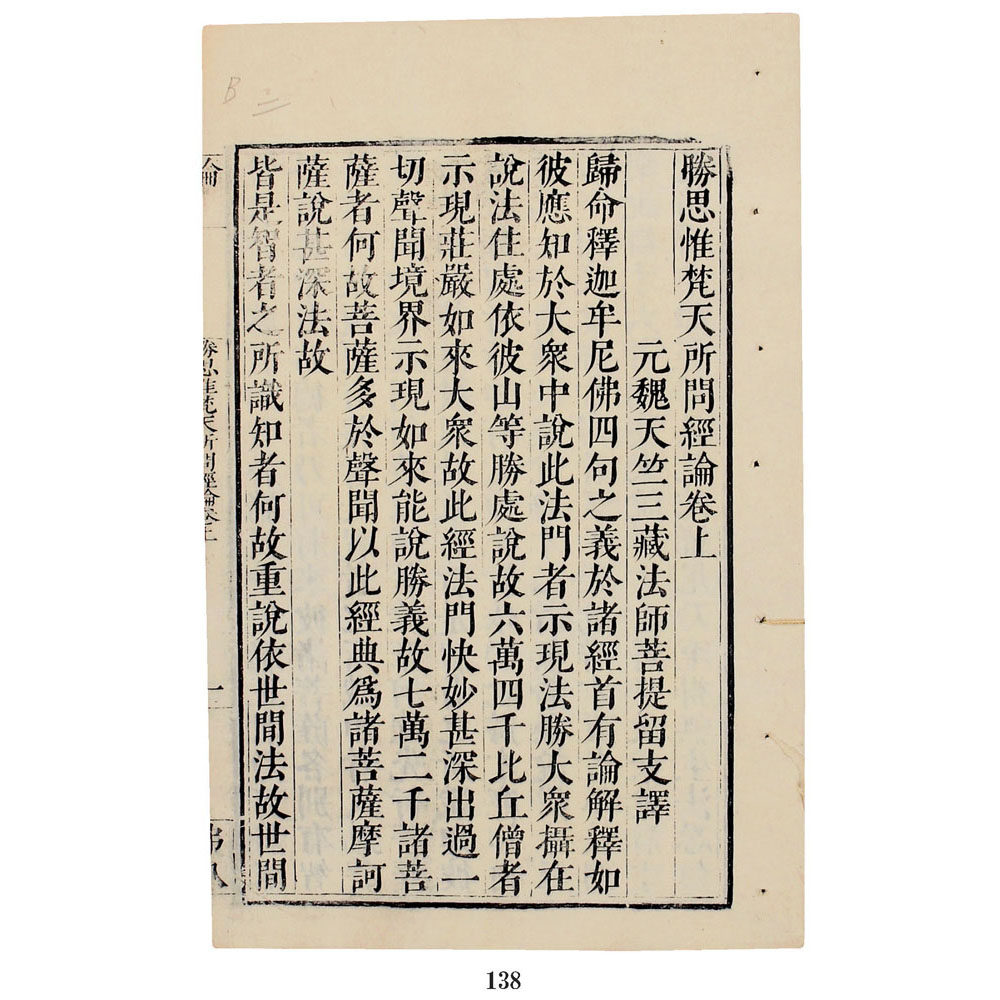 勝思惟梵天所問經論卷上
元魏天竺三藏法師菩提留支譯
歸命釋迦牟尼佛四句之義於諸經首有論解釋如
彼應知於大衆中說此法門者示現法勝大衆攝在
說法住處依彼山等勝處說故六萬四千比丘僧者
示現莊嚴如來大衆故此經法門快妙甚深出過一
切聲聞境界示現如來能說勝義故七萬二千諸菩
薩者何故菩薩多於聲聞以此經典爲諸菩薩摩訶
薩說甚深法故
皆是智者之所識知者何故重說依世間法故世間
論一
勝思惟梵天所問經論卷上
一
B 二
138